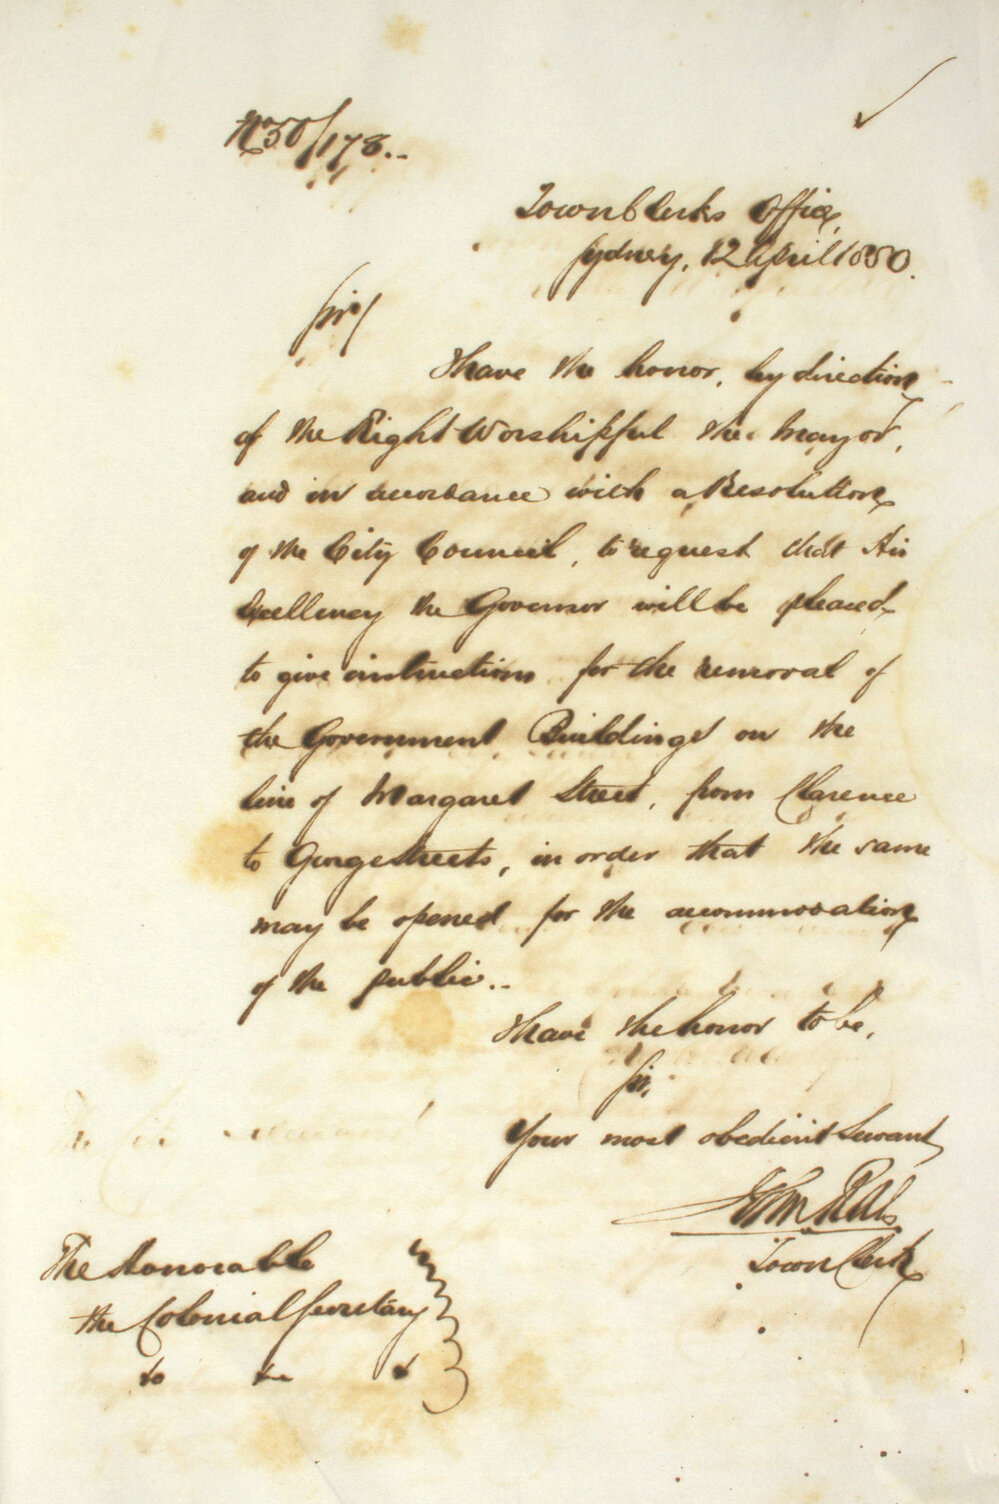 No 50/178..
Town Clerks Office,
Sydney, 12 April 1850.
Sir/
I have the honor, by direction
of the Right Worshipful the Mayor,
and in accordance with a Resolution
of the City Council, to request that His
Excellency the Governor will be pleased
to give instructions for the removal of
the Government Buildings on the
line of Margaret Street, from Clarence
to George Streets, in order that the same
may be opened for the accommodation
of the public..
I have the honor to be,
Sir,
Your most obedient Servant,
John Rae
Town Clerk
The Honorable
the Colonial Secretary